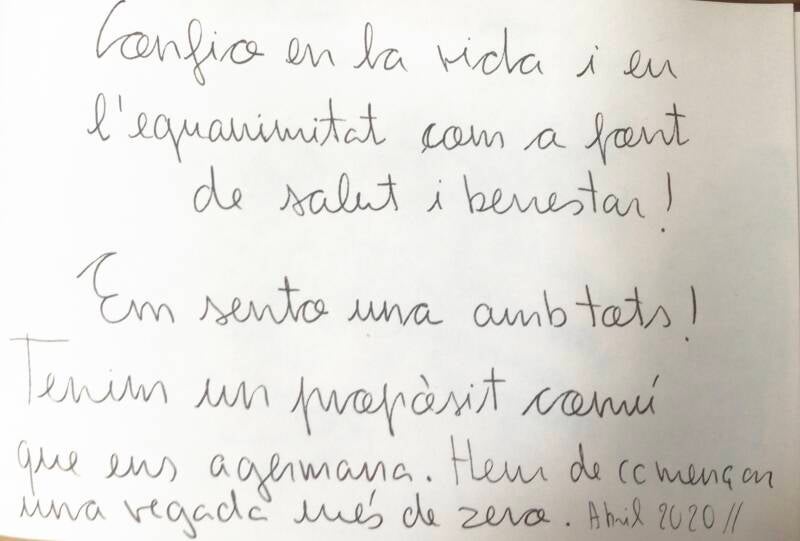 Confio en la vida i en
l'equanimitat com a font
de salut i benestar!
Em sento una amb tots!
Tenim un propòsit comú
que ens agermana. Hem de començar
una vegada més de zero. Abril 2020 //